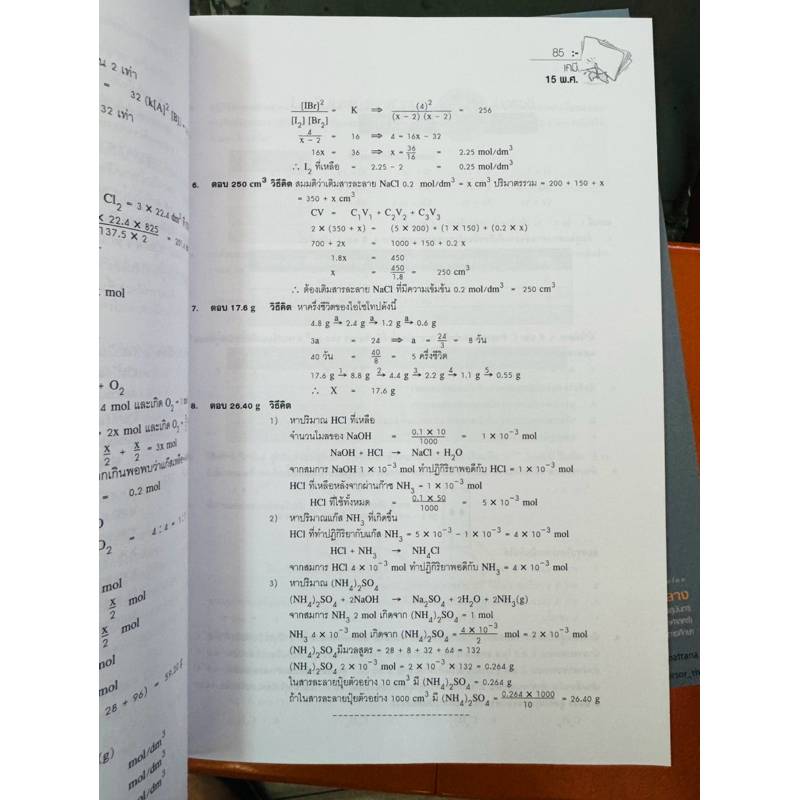 85 :-
เคมี
15 พ.ศ.
[IBr]² / [I₂] [Br₂] = K ⇒ (4)² / (x – 2) (x – 2) = 256
4 / x – 2 = 16 ⇒ 4 = 16x – 32
16x = 36 ⇒ x = 36/16 = 2.25 mol/dm³
∴ I₂ ที่เหลือ = 2.25 – 2 = 0.25 mol/dm³
6. ตอบ 250 cm³ วิธีคิด สมมติว่าเติมสารละลาย NaCl 0.2 mol/dm³ = x cm³ ปริมาตรรวม = 200 + 150 + x
= 350 + x cm³
CV = C₁V₁ + C₂V₂ + C₃V₃
2 × (350 + x) = (5 × 200) + (1 × 150) + (0.2 × x)
700 + 2x = 1000 + 150 + 0.2 x
1.8x = 450
x = 450/1.8 = 250 cm³
∴ ต้องเติมสารละลาย NaCl ที่มีความเข้มข้น 0.2 mol/dm³ = 250 cm³
7. ตอบ 17.6 g วิธีคิด หาครึ่งชีวิตของไอโซโทปดังนี้
4.8 g a→ 2.4 g a→ 1.2 g a→ 0.6 g
3a = 24 ⇒ a = 24/3 = 8 วัน
40 วัน = 40/8 = 5 ครึ่งชีวิต
17.6 g 1→ 8.8 g 2→ 4.4 g 3→ 2.2 g 4→ 1.1 g 5→ 0.55 g
∴ X = 17.6 g
8. ตอบ 26.40 g วิธีคิด
1) หาปริมาณ HCl ที่เหลือ
จำนวนโมลของ NaOH = 0.1 × 10 / 1000 = 1 × 10⁻³ mol
NaOH + HCl → NaCl + H₂O
จากสมการ NaOH 1 × 10⁻³ mol ทำปฏิกิริยาพอดีกับ HCl = 1 × 10⁻³ mol
HCl ที่เหลือหลังจากผ่านก๊าซ NH₃ = 1 × 10⁻³ mol
HCl ที่ใช้ทั้งหมด = 0.1 × 50 / 1000 = 5 × 10⁻³ mol
2) หาปริมาณแก๊ส NH₃ ที่เกิดขึ้น
HCl ที่ทำปฏิกิริยากับแก๊ส NH₃ = 5 × 10⁻³ – 1 × 10⁻³ = 4 × 10⁻³ mol
HCl + NH₃ → NH₄Cl
จากสมการ HCl 4 × 10⁻³ mol ทำปฏิกิริยาพอดีกับ NH₃ = 4 × 10⁻³ mol
3) หาปริมาณ (NH₄)₂SO₄
(NH₄)₂SO₄ + 2NaOH → Na₂SO₄ + 2H₂O + 2NH₃(g)
จากสมการ NH₃ 2 mol เกิดจาก (NH₄)₂SO₄ = 1 mol
NH₃ 4 × 10⁻³ mol เกิดจาก (NH₄)₂SO₄ = 4 × 10⁻³ / 2 mol = 2 × 10⁻³ mol
(NH₄)₂SO₄มีมวลสูตร = 28 + 8 + 32 + 64 = 132
(NH₄)₂SO₄ 2 × 10⁻³ mol = 2 × 10⁻³ × 132 = 0.264 g
ในสารละลายปุ๋ยตัวอย่าง 10 cm³ มี (NH₄)₂SO₄ = 0.264 g
ถ้าในสารละลายปุ๋ยตัวอย่าง 1000 cm³ มี (NH₄)₂SO₄ = 0.264 × 1000 / 10 = 26.40 g
2 เท่า
= 32 (k[A]² [B]
32 เท่า
Cl₂ = 3 × 22.4 dm³
× 22.4 × 825 / 137.5 × 2
mol
+ O₂
4 mol และเกิด O₂
+ 2x mol และเกิด O₂
x/2 + x/2 = 3x mol
= 0.2 mol
O₂ = 4 : 4
mol
x/2 mol
x/2 mol
mol
28 + 96)
(g) mol/dm³
mol/dm³
mol/dm³
ลาง
pattana